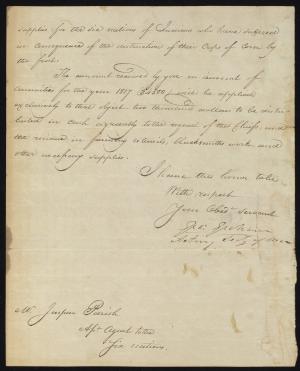 supplies for the six nations of Indians who have suffered
in consequence of the destruction of their Crops of Corn by
the frost.
The amount received by you on account of
annuities for the year 1817 will be applied
exclusively to that object two thousand dollars to be distri-
buted in cash agreeably to the request of the Chiefs, and
the residue in farming utensils, blacksmiths work and
other necessary supplies.
I have the honor to be
With respect
Your Obedt servant
Geo: Graham
Acting Secy of War
Mr Jasper Parrish
Agent to the
Six nations.